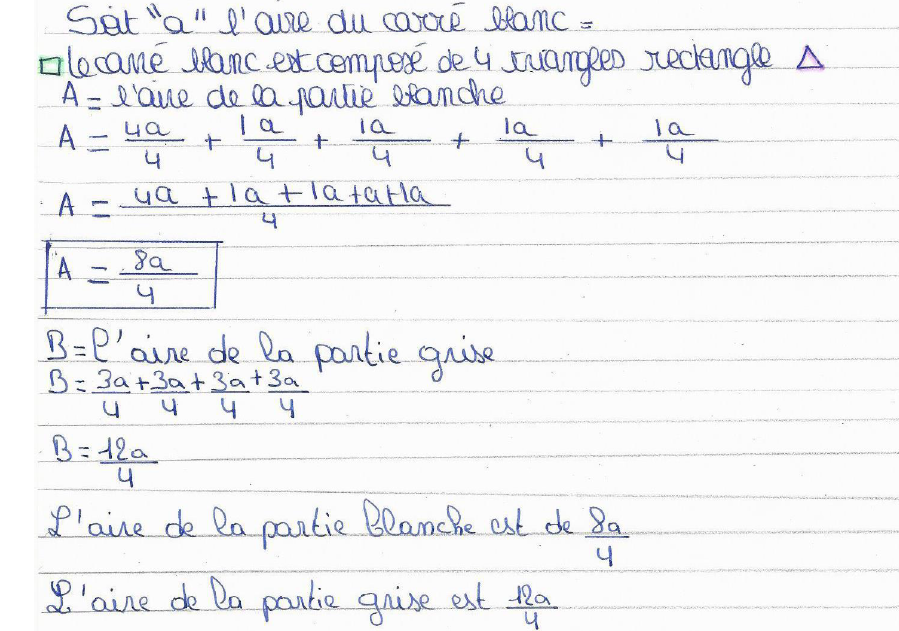 Soit "a" l'aire du carré blanc =
le carré blanc est composé de 4 triangles rectangle
A = l'aire de la partie blanche
A = 4a/4 + 1a/4 + 1a/4 + 1a/4 + 1a/4
A = (4a + 1a + 1a + a + 1a)/4
A = 8a/4
B = l'aire de la partie grise
B = 3a/4 + 3a/4 + 3a/4 + 3a/4
B = 12a/4
L'aire de la partie blanche est de 8a/4
L'aire de la partie grise est 12a/4